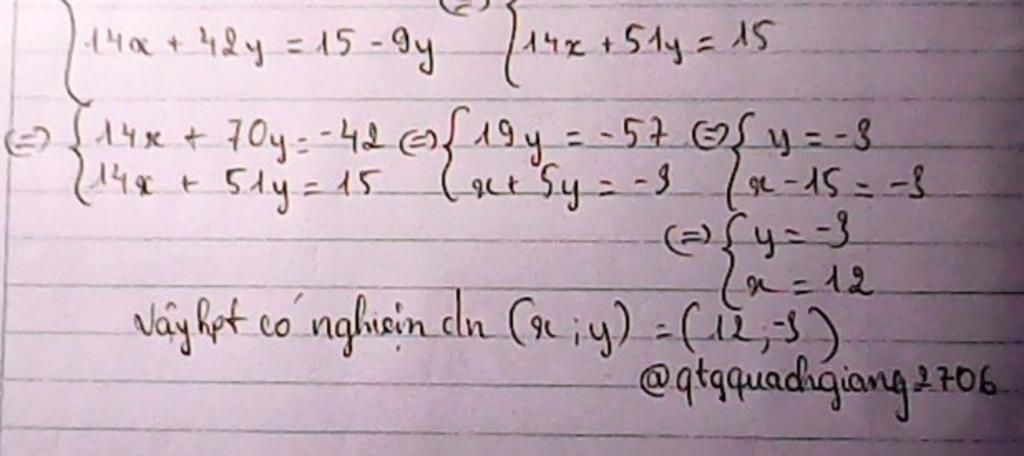 14x + 42y = 15 - 9y (=) 14x + 51y = 15
(=) { 14x + 70y = -42 (=) { 19y = -57 (=) { y = -3
14x + 51y = 15 x + 5y = -3 x - 15 = -3
(=) { y = -3
x = 12
Vậy hpt có nghiệm dn (x ; y) = (12 ; -3)
@qtgquachgiang2706